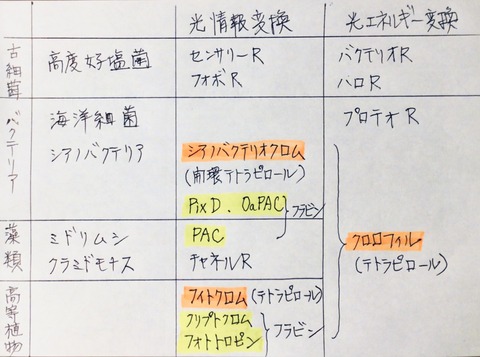 光情報変換 光エネルギー変換
古細菌 高度好塩菌 センサリーR バクテリオR
フォボR ハロR
バクテリア 海洋細菌 プロテオR
シアノバクテリア シアノバクテリオクロム
(開環テトラピロール)
PixD. OaPAC フラビン
藻類 ミドリムシ PAC クロロフィル
クラミドモナス チャネルR (テトラピロール)
高等植物 フイトクロム (テトラピロール)
クリプトクロム フラビン
フォトトロピン